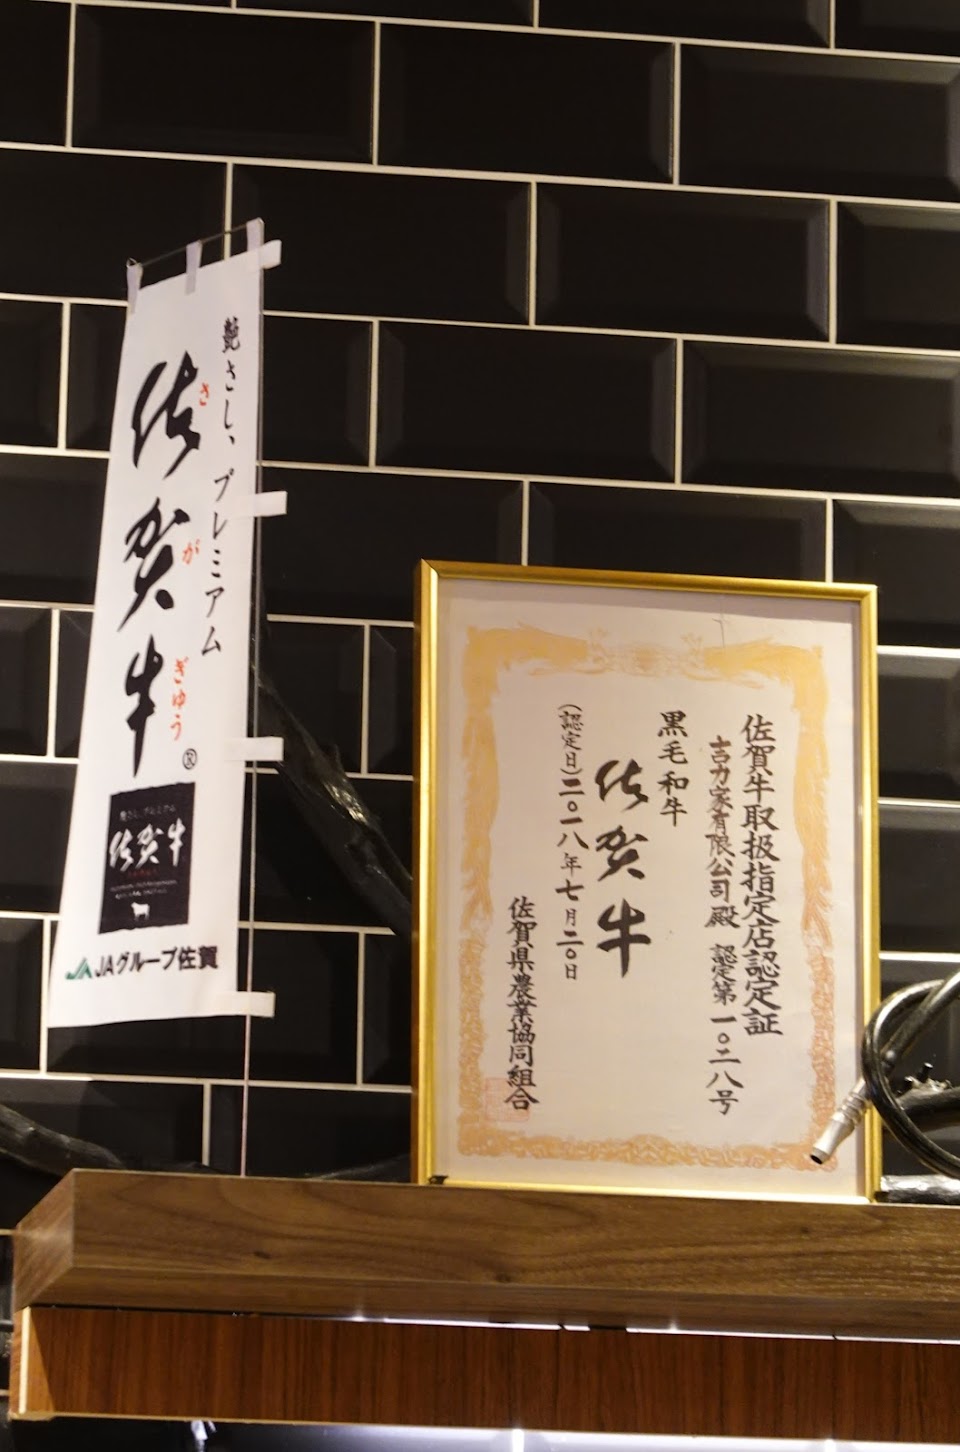 艶さし、プレミアム
佐賀牛
さ
が
ぎゅう
®
艶さし、プレミアム
佐賀牛
JA JAグループ佐賀
佐賀牛取扱指定店認定証
吉力家有限公司殿 認定第一〇二八号
黒毛和牛
佐賀牛
(認定日)二〇一八年七月二〇日
佐賀県農業協同組合